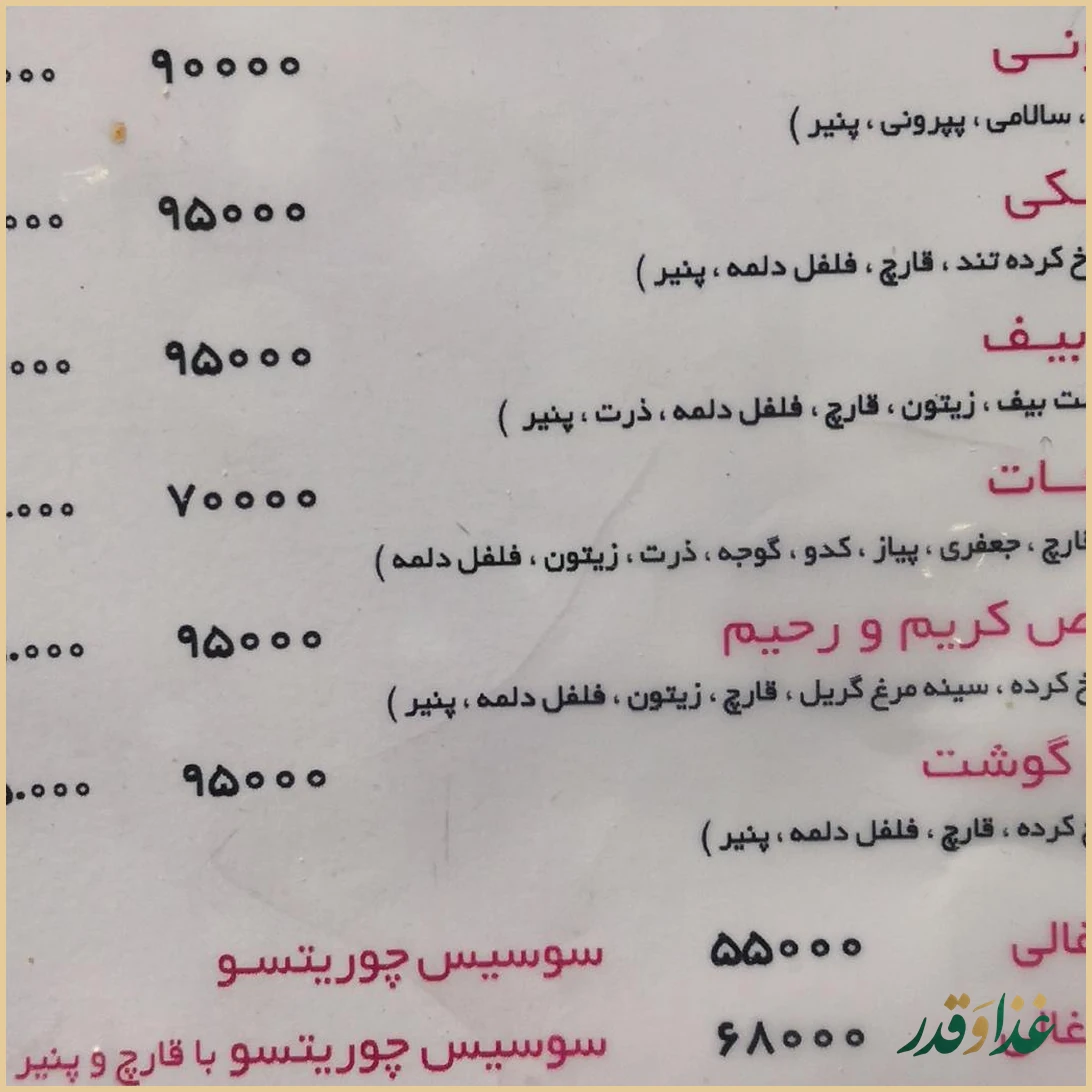 ۹۰۰۰۰
، سالامی ، پپرونی ، پنیر )
۹۵۰۰۰
کرده تند ، قارچ ، فلفل دلمه ، پنیر )
بیـف ۹۵۰۰۰
بیف ، زیتون ، قارچ ، فلفل دلمه ، ذرت ، پنیر )
۷۰۰۰۰
، جعفری ، پیاز ، کدو ، گوجه ، ذرت ، زیتون ، فلفل دلمه )
کریم و رحیم ۹۵۰۰۰
کرده ، سینه مرغ گریل ، قارچ ، زیتون ، فلفل دلمه ، پنیر )
گوشت ۹۵۰۰۰
کرده ، قارچ ، فلفل دلمه ، پنیر )
۵۵۰۰۰ سوسیس چوریتسـو
۶۸۰۰۰ سوسیس چوریتسو با قارچ و پنیر
غذا وَ قدر